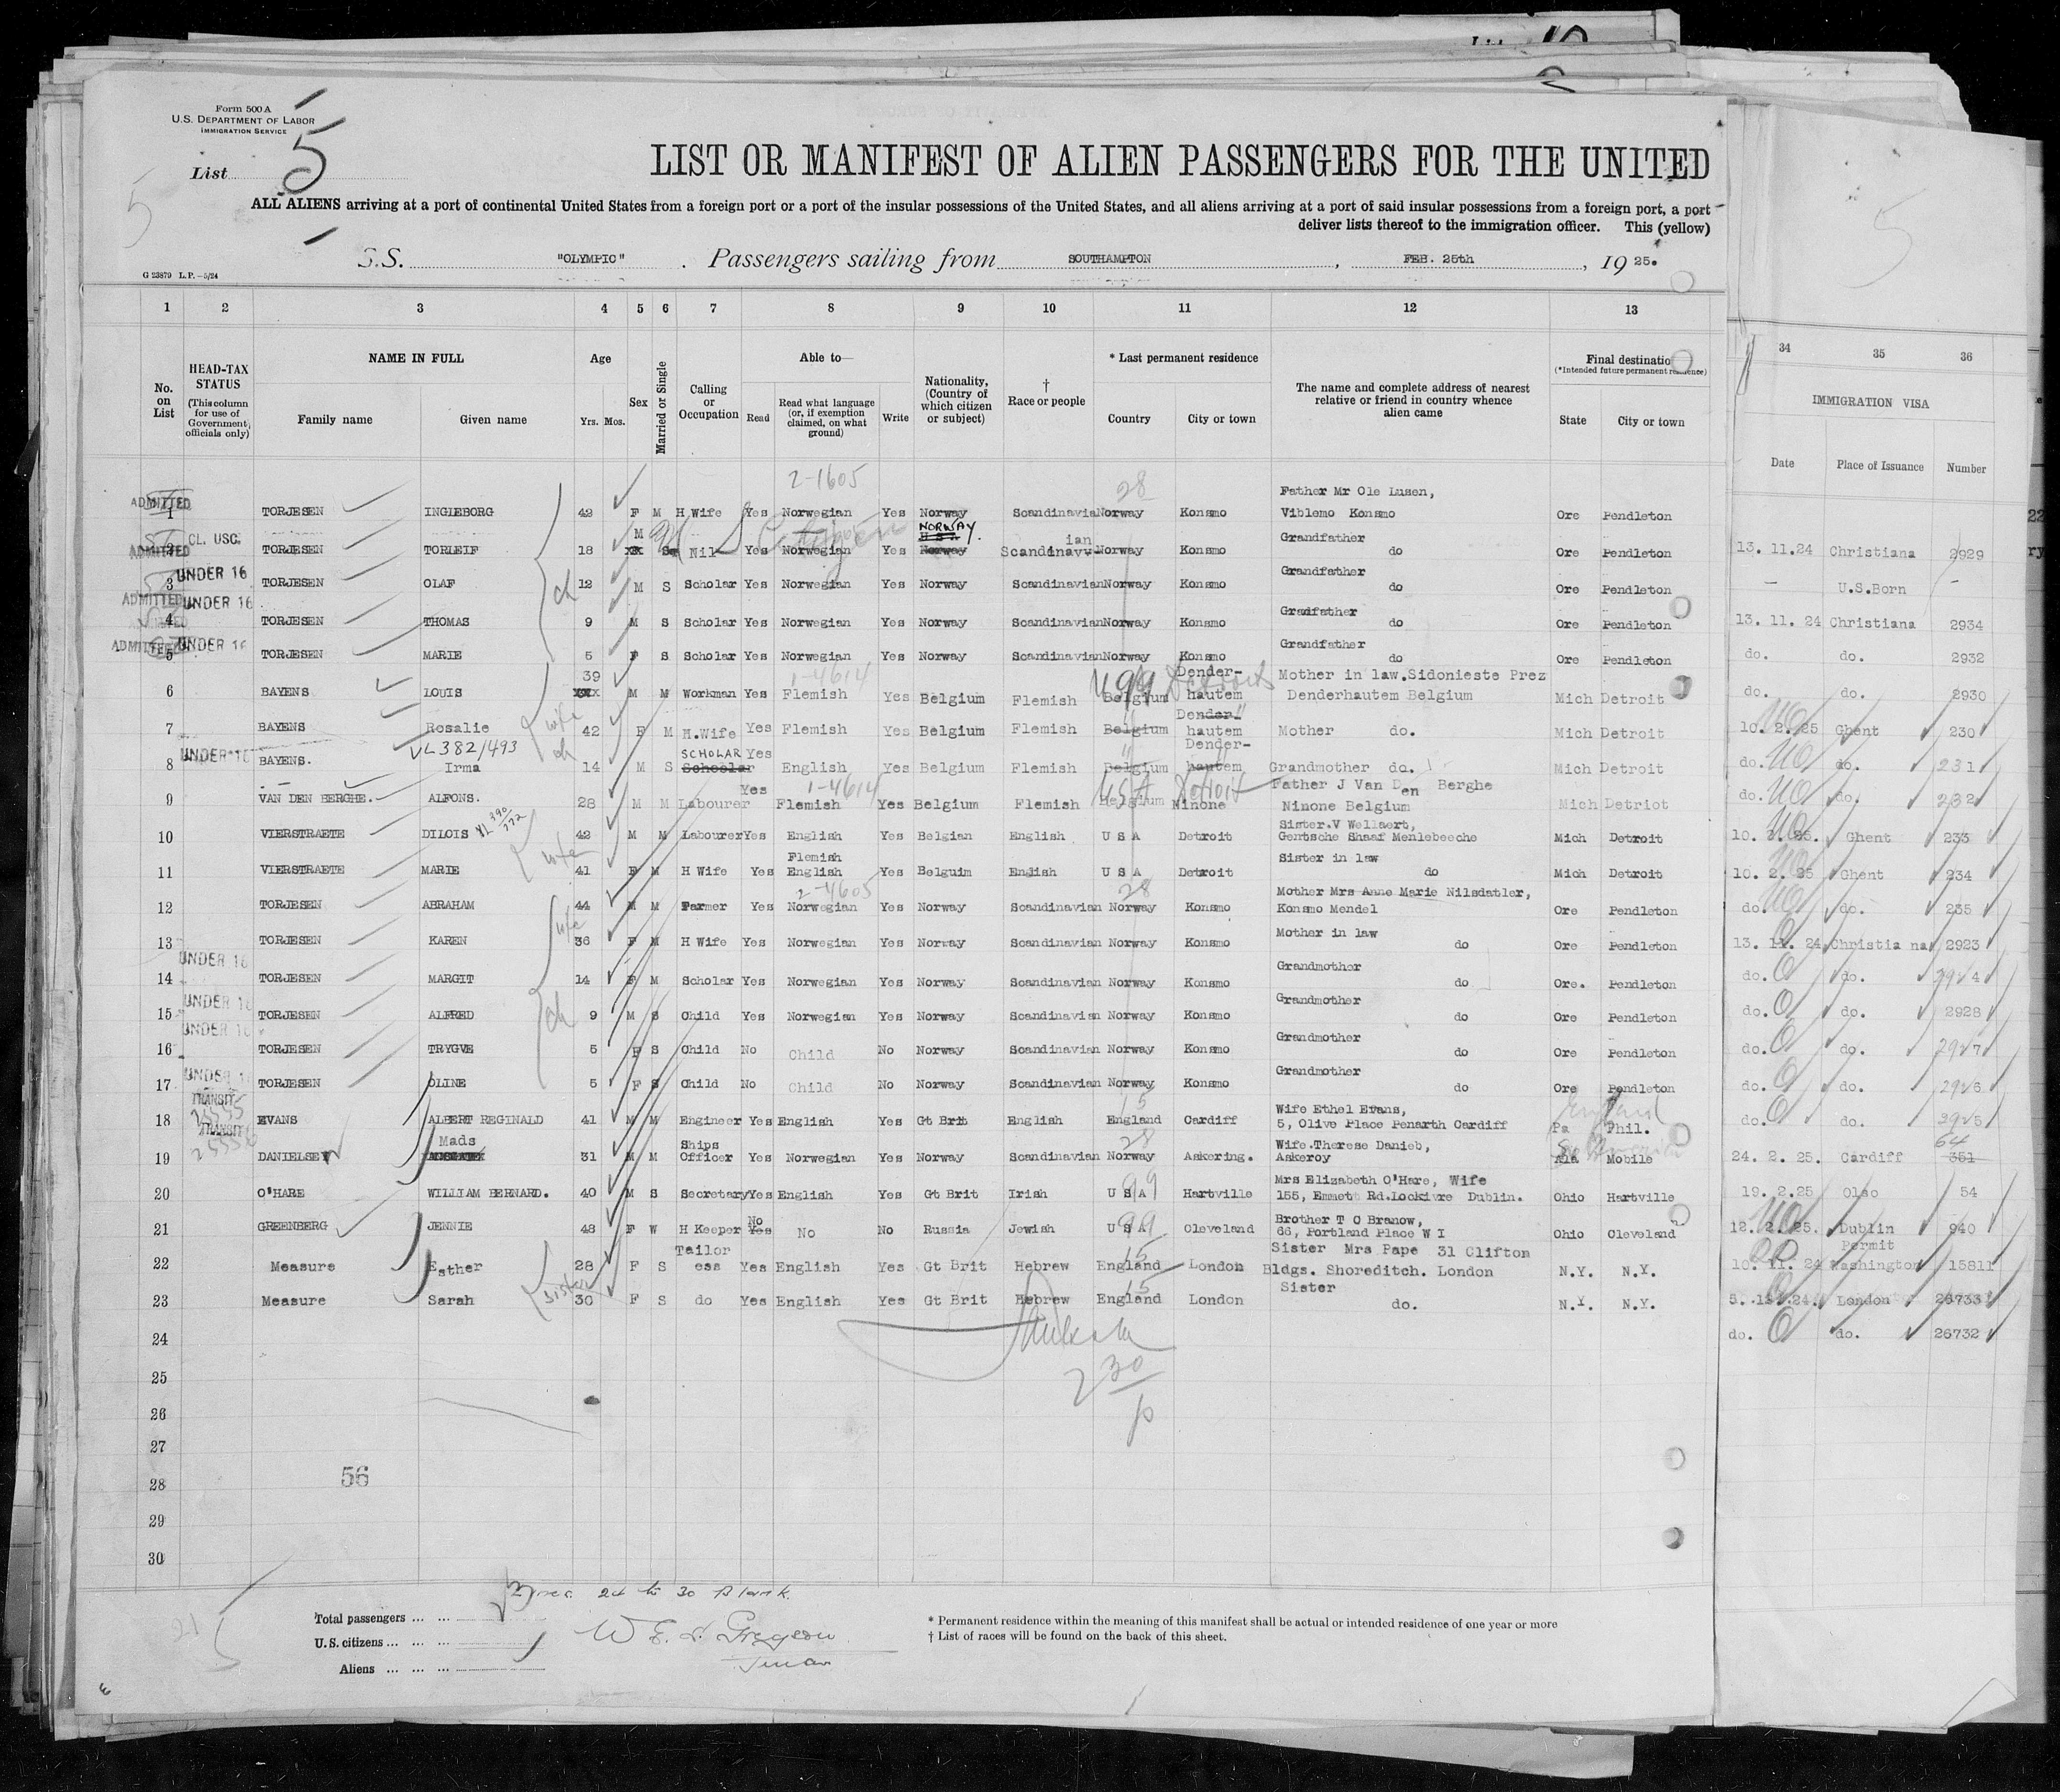 Form 500 A
U.S. DEPARTMENT OF LABOR
IMMIGRATION SERVICE
List 5
5
5
LIST OR MANIFEST OF ALIEN PASSENGERS FOR THE UNITED
ALL ALIENS arriving at a port of continental United States from a foreign port or a port of the insular possessions of the United States, and all aliens arriving at a port of said insular possessions from a foreign port, a port
deliver lists thereof to the immigration officer. This (yellow)
S.S. "OLYMPIC" . Passengers sailing from SOUTHAMPTON , FEB. 25th , 19 25.
G 23879 L.P.—5/24
1 2 3 4 5 6 7 8 9 10 11 12 13 34 35 36
No. on List
HEAD-TAX STATUS (This column for use of Government officials only)
NAME IN FULL Family name Given name
Age Yrs. Mos.
Sex
Married or Single
Calling or Occupation
Able to— Read Read what language (or, if exemption claimed, on what ground) Write
Nationality, (Country of which citizen or subject)
† Race or people
* Last permanent residence Country City or town
The name and complete address of nearest relative or friend in country whence alien came
Final destination (*Intended future permanent residence) State City or town
IMMIGRATION VISA
Date Place of Issuance Number
2-1605 28
Father Mr Ole Lusen,
ADMITTED 1 TORJESEN INGLEBORG 42 F M H Wife Yes Norwegian Yes Norway Scandinavian Norway Konsmo Viblemo Konsmo Ore Pendleton
CL. USC. M NORWAY ian Grandfather
ADMITTED 2 TORJESEN TORLEIF 18 Nil Yes Norwegian Yes Norway Scandinav Norway Konsmo do Ore Pendleton 13. 11.24 Christiana 2929
UNDER 16 Grandfather
3 TORJESEN OLAF 12 M S Scholar Yes Norwegian Yes Norway Scandinavian Norway Konsmo do Ore Pendleton — U.S.Born -
ADMITTED UNDER 16 ch Gradfather
4 TORJESEN THOMAS 9 M S Scholar Yes Norwegian Yes Norway Scandinavian Norway Konsmo do Ore Pendleton 13. 11. 24 Christiana 2934
ADMITTED UNDER 16 Grandfather
5 TORJESEN MARIE 5 F S Scholar Yes Norwegian Yes Norway Scandinavian Norway Konsmo do Ore Pendleton do. do. 2932
39 1-4614 99 Detroit Dender- Mother in law.Sidonieste Prez
6 BAYENS LOUIS M M Workman Yes Flemish Yes Belgium Flemish Belgium hautem Denderhautem Belgium Mich Detroit do. do. 2930
wife Denden
7 BAYENS Rosalie 42 F M H.Wife Yes Flemish Yes Belgium Flemish Belgium hautem Mother do. Mich Detroit 10. 2. 25 Ghent 230
UNDER 16 VL 382/493 ch SCHOLAR Yes Dender-
8 BAYENS. Irma 14 M S Schoolar English Yes Belgium Flemish Belgium hautem Grandmother do. Mich Detroit do. do. 231
Yes 1-4614 USA Detroit Father J Van Den Berghe
9 VAN DEN BERGHE. ALFONS. 28 M M Labourer Flemish Yes Belgium Flemish Belgium Ninone Ninone Belgium Mich Detriot do. do. 232
VL 390/272 Sister.V Wellaert,
10 VIERSTRAETE DILOIS 42 M M Labourer Yes English Yes Belgian English U S A Detroit Gentsche Shaaf Menlebeeche Mich Detroit 10. 2. 25. Ghent 233
wife Flemish Sister in law
11 VIERSTRAETE MARIE 41 F M H Wife Yes English Yes Belguim English U S A Detroit do Mich Detroit 10. 2. 25 Ghent 234
2-4605 28 Mother Mrs Anne Marie Nilsdatler,
12 TORJESEN ABRAHAM 44 M M Farmer Yes Norwegian Yes Norway Scandinavian Norway Konsmo Konsmo Mendel Ore Pendleton do. do. 235
wife Mother in law
13 TORJESEN KAREN 36 F M H Wife Yes Norwegian Yes Norway Scandinavian Norway Konsmo do Ore Pendleton 13. 11. 24 Christia na 2923
UNDER 16 Grandmother
14 TORJESEN MARGIT 14 F M Scholar Yes Norwegian Yes Norway Scandinavian Norway Konsmo do Ore. Pendleton do. do. 2924
UNDER 16 ch Grandmother
15 TORJESEN ALFRED 9 M S Child Yes Norwegian Yes Norway Scandinavian Norway Konsmo do Ore Pendleton do. do. 2928
UNDER 16 Grandmother
16 TORJESEN TRYGVE 5 F S Child No Child No Norway Scandinavian Norway Konsmo do Ore Pendleton do. do. 2927
UNDER 16 Grandmother
17 TORJESEN OLINE 5 F S Child No Child No Norway Scandinavian Norway Konsmo do Ore Pendleton do. do. 2926
TRANSIT 15 Wife Ethel Evans, England
18 EVANS ALBERT REGINALD 41 M M Engineer Yes English Yes Gt Brit English England Cardiff 5, Olive Place Penarth Cardiff Pa Phil. do. do. 2925
TRANSIT Mads Ships 28 Wife.Therese Danieb, 64
19 DANIELSEN 31 M M Officer Yes Norwegian Yes Norway Scandinavian Norway Askering. Askeroy Ala Mobile 24. 2. 25. Cardiff 351
99 Mrs Elizabeth O'Hare, Wife
20 O'HARE WILLIAM BERNARD. 40 M S Secretary Yes English Yes Gt Brit Irish U S A Hartville 155, Emmett Rd.Lockivre Dublin. Ohio Hartville 19. 2.25 Olso 54
No 99 Brother T C Branow,
21 GREENBERG JENNIE 48 F W H Keeper Yes No No Russia Jewish U S A Cleveland 66, Portland Place W I Ohio Cleveland 12. 2. 25. Dublin 940
Tailor 15 Sister Mrs Pape 31 Clifton Permit
22 Measure Esther 28 F S ess Yes English Yes Gt Brit Hebrew England London Bldgs. Shoreditch. London N.Y. N.Y. 10. 11. 24 Washington 15811
sister 15 Sister
23 Measure Sarah 30 F S do Yes English Yes Gt Brit Hebrew England London do. N.Y. N.Y. 5. 12. 24. London 26733
24 do. do. 26732
25
26
27
28 56
29
30
Lines 24 to 30 Blank.
Total passengers ... ...
U.S. citizens ... ... ...
Aliens ... ... ...
* Permanent residence within the meaning of this manifest shall be actual or intended residence of one year or more
† List of races will be found on the back of this sheet.